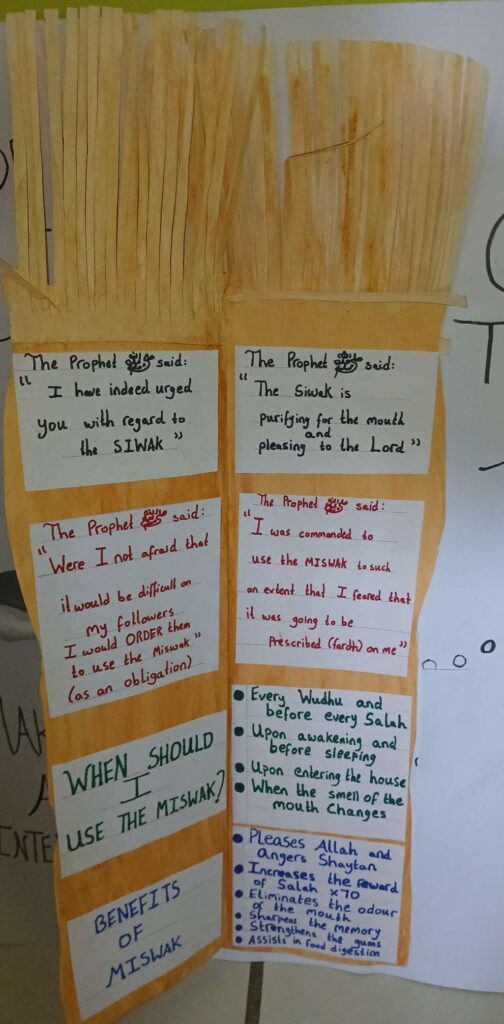 The Prophet ﷺ said:
"I have indeed urged
you with regard to
the SIWAK"
The Prophet ﷺ said:
"The Siwak is
purifying for the mouth
and
pleasing to the Lord"
The Prophet ﷺ said:
"Were I not afraid that
it would be difficult on
my followers
I would ORDER them
to use the Miswak"
(as an obligation)
The Prophet ﷺ said:
"I was commanded to
use the MISWAK to such
an extent that I feared that
it was going to be
Prescribed (fardh) on me"
WHEN SHOULD
I
USE THE MISWAK?
• Every Wudhu and
before every Salah
• Upon awakening and
before sleeping
• Upon entering the house
• When the smell of the
mouth Changes
BENEFITS
OF
MISWAK
• Pleases Allah and
angers Shaytan
• Increases the reward
of Salah x70
• Eliminates the odour
of the mouth
• Sharpens the memory
• Strengthens the gums
• Assists in food digestion